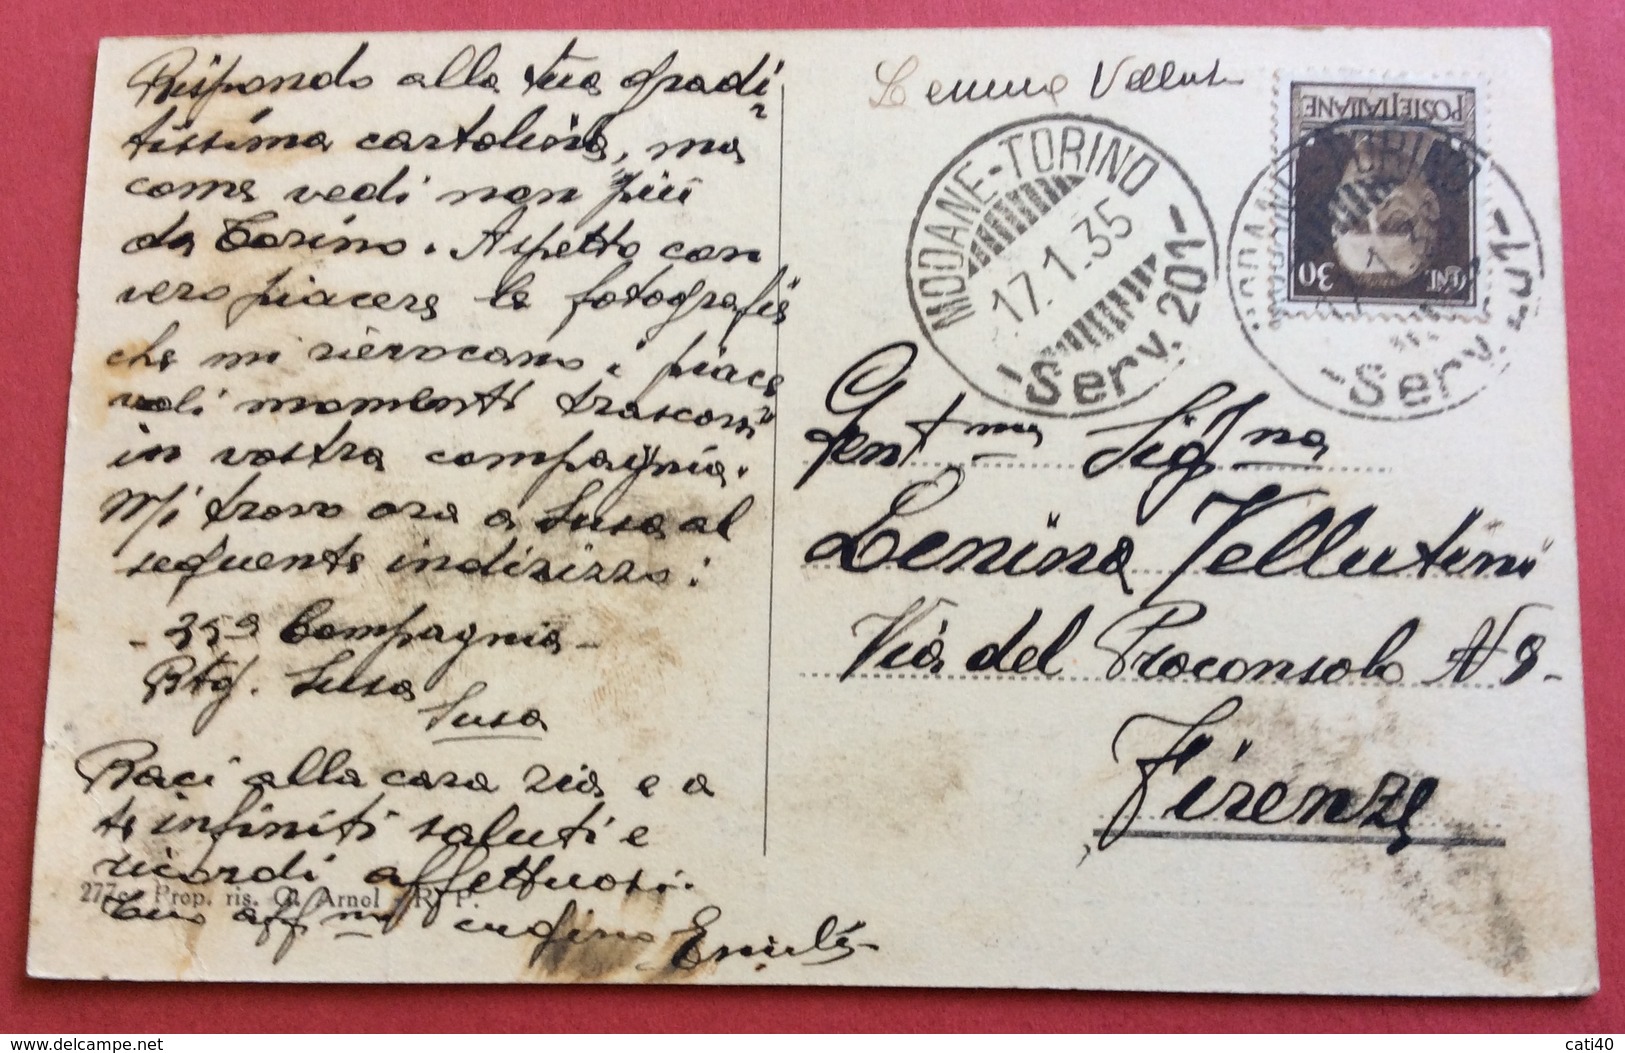 Rispondo alla tua gradi
tissima cartolina, ma
come vedi non più
da Torino. Aspetto con
vero piacere le fotografie
che mi rievocano i piace
voli momenti trascorsi
in vostra compagnia.
Mi trovo ora a Susa al
seguente indirizzo:
- 35ª Compagnia -
Btg. Susa
Susa
Baci alla cara zia e a
te infiniti saluti e
ricordi affettuosi.
277c. Prop. ris. G. Arnol - R. P.
tuo aff.mo cugino
Lenina
POSTE ITALIANE
30 CENT.
MODANE-TORINO
17.1.35
-Serv. 201-
MODANE-TORINO
-Serv. 201-
Gent.ma Sig.na
Lenina Vellutini
Via del Proconsolo N 8-
Firenze
cati40